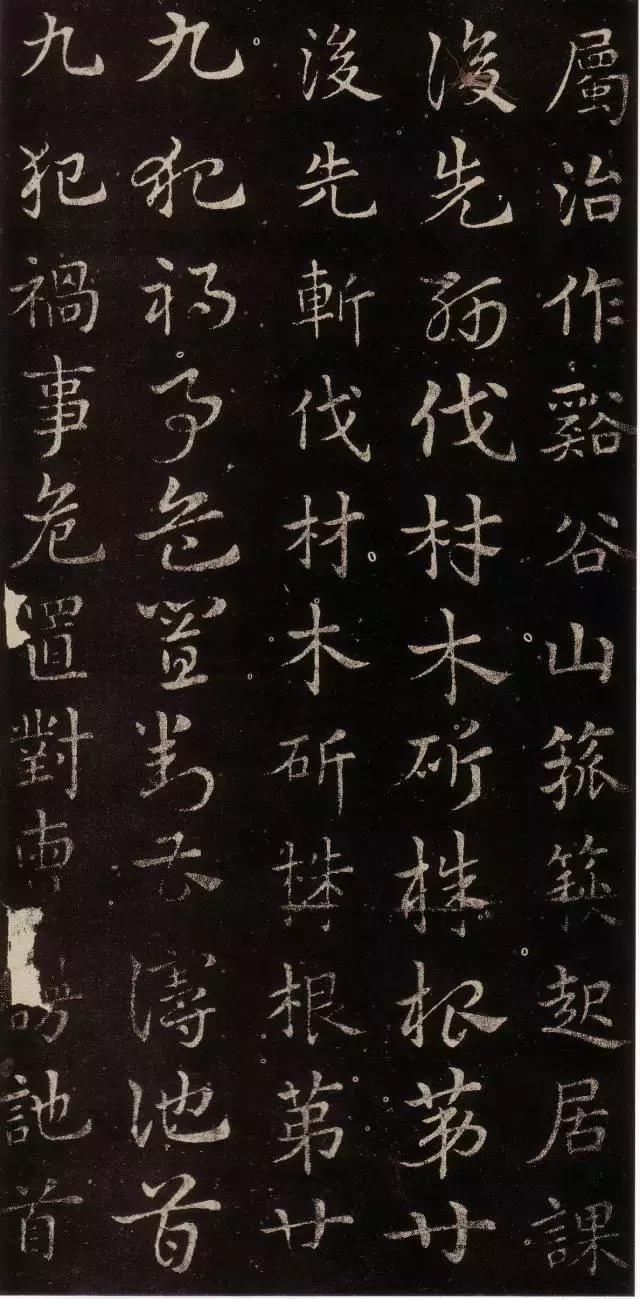 屬治作谿谷山箛起居課
後先斬伐材木斫株根第廿
後先斬伐材木斫株根第廿
九犯禍事危置對訑首
九犯禍事危置對訑首